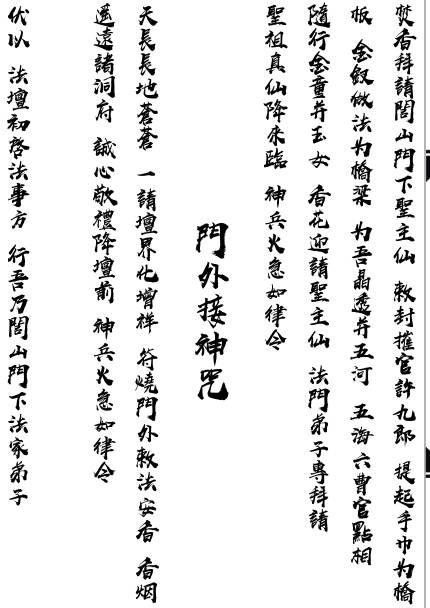 焚香拜請閭山門下聖主仙 敕封摧官許九郎 提起手巾為橋
板 金釵做法为橋梁 为吾晶透并五河 五海六曹官點相
隨行金童并玉女 香花迎請聖主仙 法門弟子專拜請
聖祖真仙降來臨 神兵火急如律令
門外接神咒
天長長地蒼蒼 一請壇界化增祥 符燒門外敕法安香 香烟
遥遠諸洞府 誠心敬禮降壇前 神兵火急如律令
伏以 法壇初啓法事方 行吾乃閭山門下法家弟子